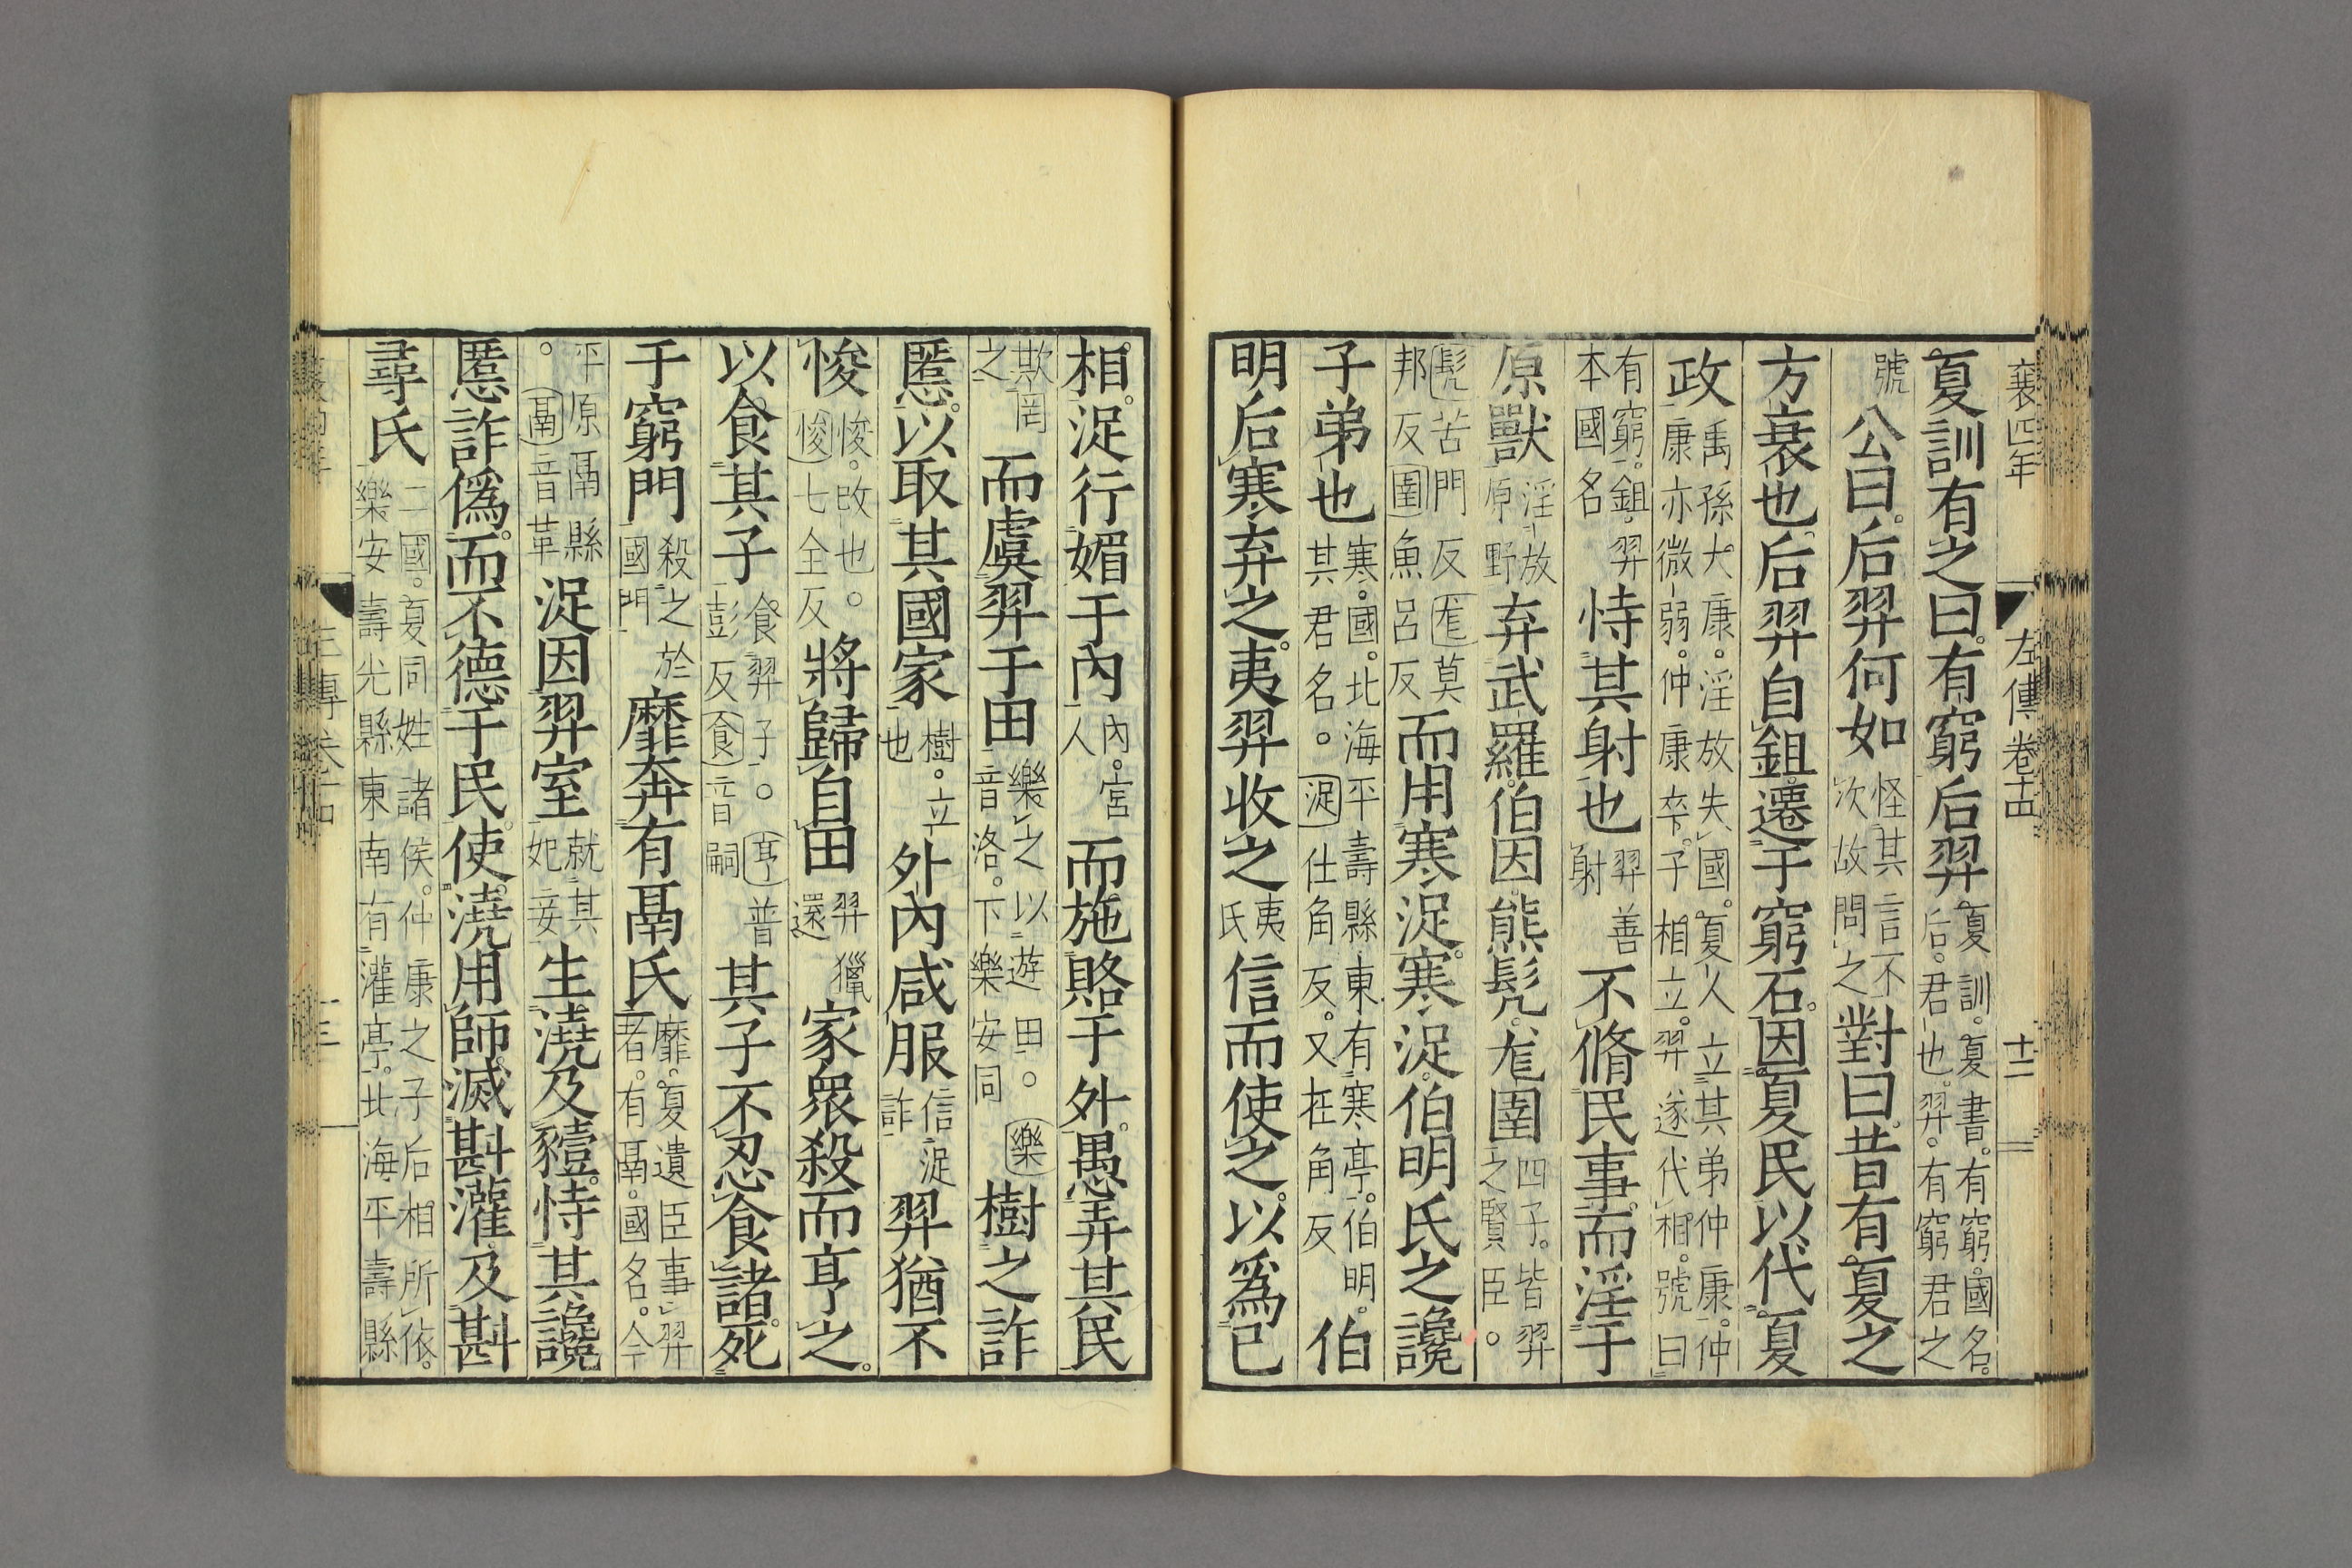 襄四年
左傳卷十四
十二
夏訓有之曰。有窮后羿。夏訓。夏書。有窮。國名。后。君也。羿。有窮君之
號公曰。后羿何如怪其言不次故問之對曰。昔有夏之
方衰也。后羿自鉏遷于窮石。因夏民以代夏
政禹孫大康。淫放失國。夏人立其弟仲康。仲康亦微弱。仲康卒。子相立。羿遂代相。號曰
有窮。鉏。羿本國名恃其射也羿善射不脩民事。而淫于
原獸淫放原野弃武羅。伯因。熊髡。尨圉四子。皆羿之賢臣。
髡苦門反尨莫邦反圉魚呂反而用寒浞。寒浞。伯明氏之讒
子弟也寒。國。北海平壽縣東有寒亭。伯明。其君名。浞仕角反。又在角反伯
明后寒弃之。夷羿收之夷氏信而使之。以爲己
相。浞行媚于內內。宮人而施賂于外。愚弄其民
欺罔之而虞羿于田樂之以遊田。樂音洛。下樂安同樹之詐
慝。以取其國家樹。立也外內咸服信浞詐羿猶不
悛悛。改也。悛七全反將歸自田羿獵還家衆殺而亨之。
以食其子食羿子。亨普彭反食音嗣其子不忍食諸。死
于窮門殺之於國門靡奔有鬲氏靡。夏遺臣事羿者。有鬲。國名。今
平原鬲縣。鬲音革浞因羿室就其妃妾生澆及豷。恃其讒
慝詐僞。而不德于民。使澆用師。滅斟灌。及斟
尋氏二國。夏同姓諸侯。仲康之子后相所依。樂安壽光縣東南有灌亭。北海平壽縣